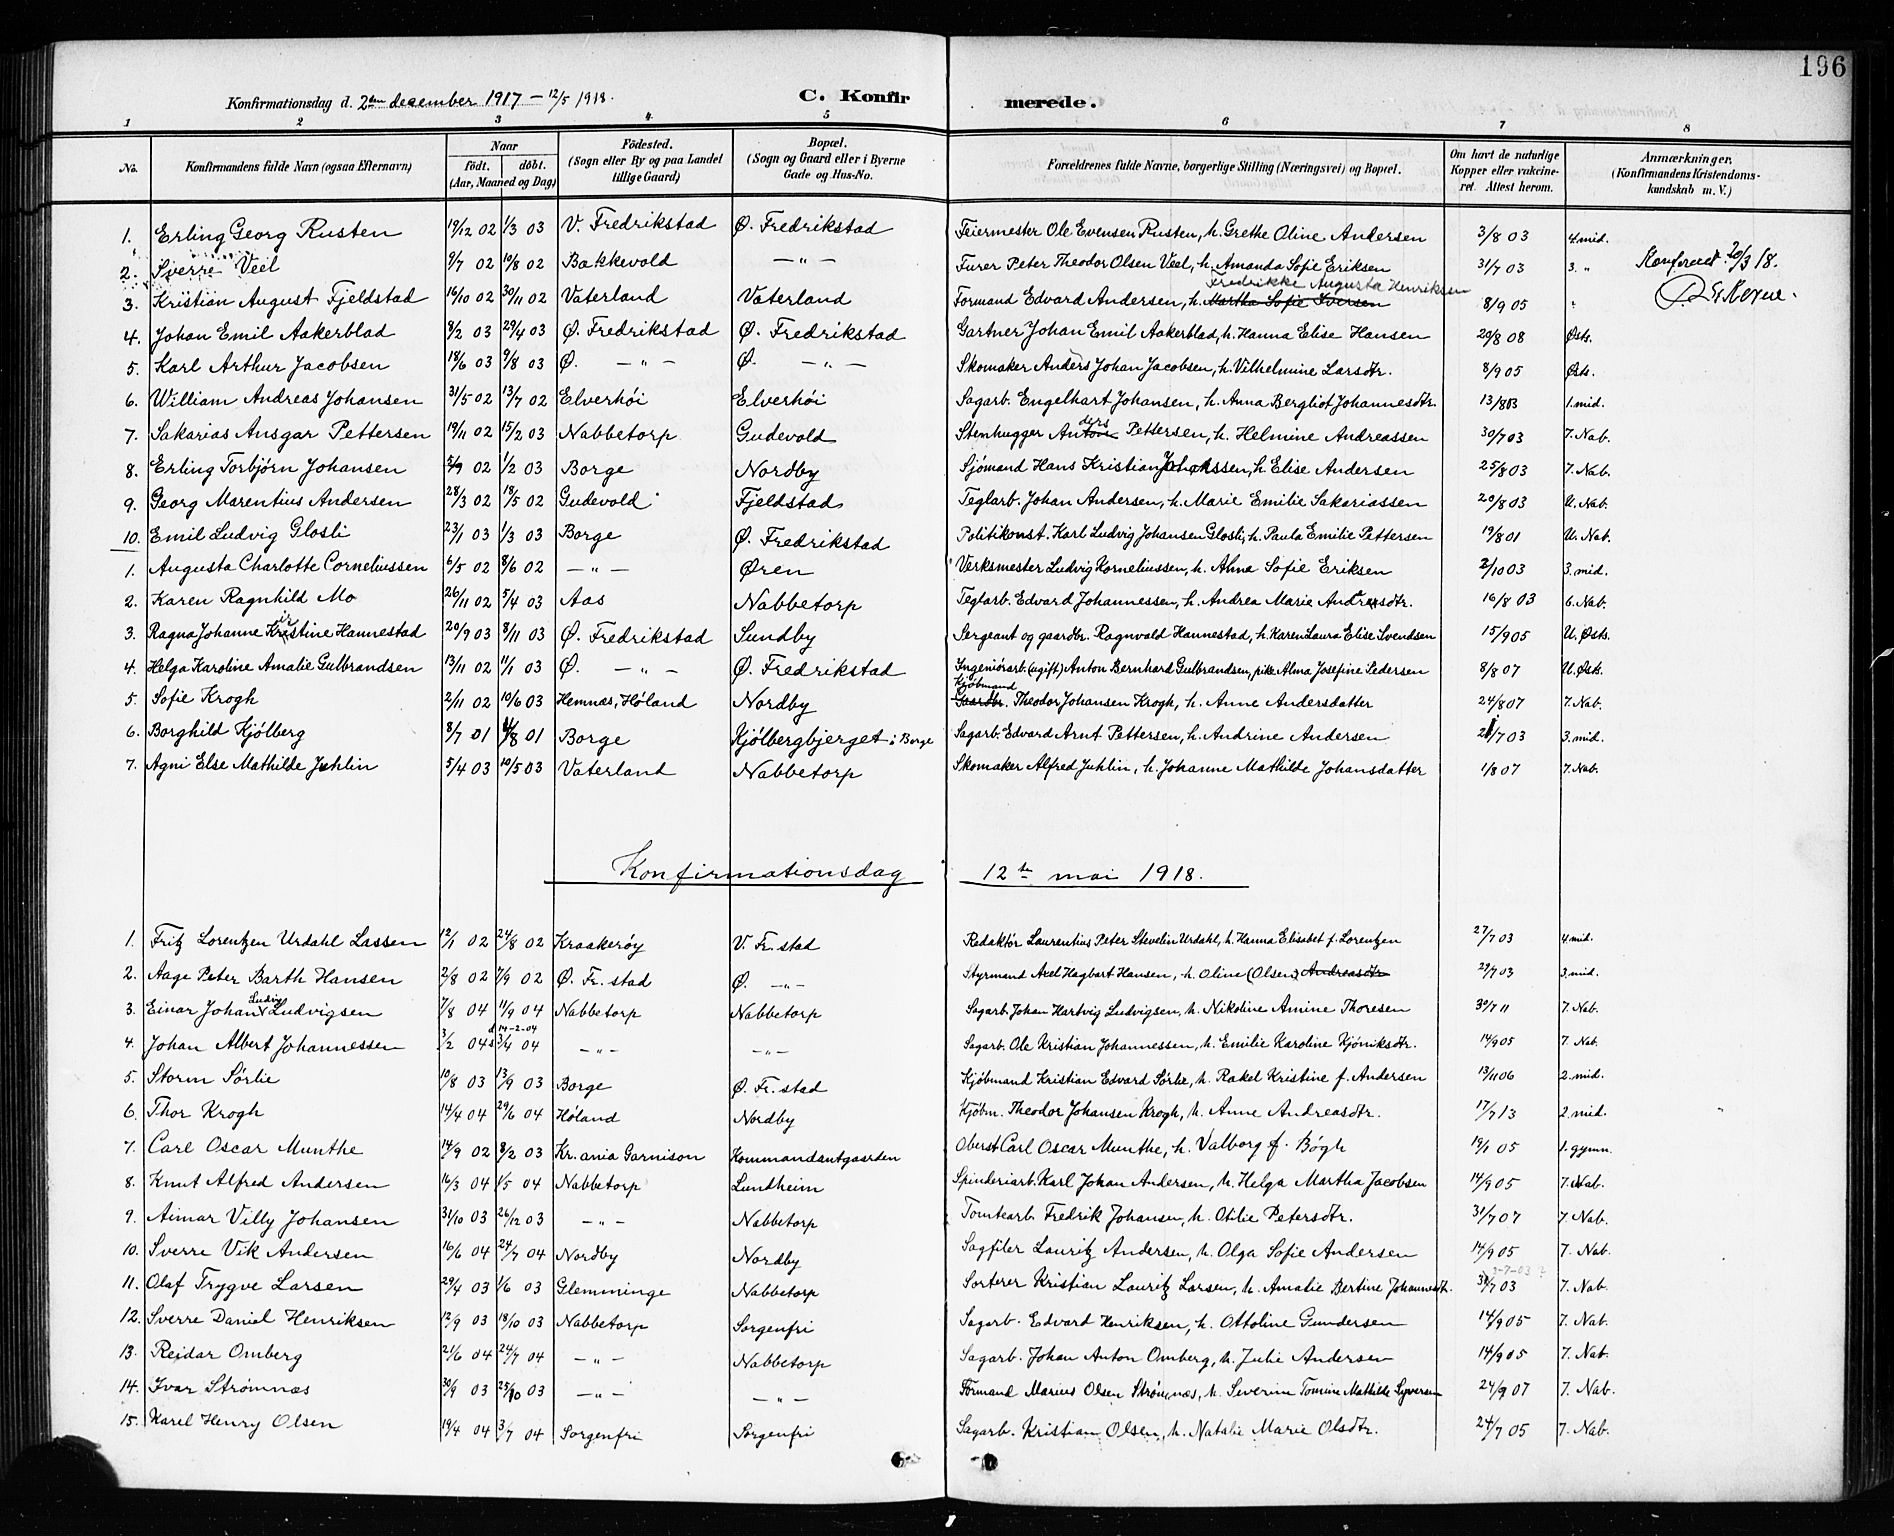 196
Konfirmationsdag d. 2den desember 1917 – 12/5 1918. C. Konfirmerede.
1 2 3 4 5 6 7 8
No. Konfirmandens fulde Navn (ogsaa Efternavn) Naar födt. döbt. (Aar, Maaned og Dag) Födested. (Sogn eller By og paa Landet tillige Gaard) Bopæl. (Sogn og Gaard eller i Byerne Gade og Hus-No. Forældrenes fulde Navne, borgerlige Stilling (Næringsvei) og Bopæl. Om havt de naturlige Kopper eller vakcineret. Attest herom. Anmærkninger. (Konfirmandens Kristendomskundskab m. V.)
1. Erling Georg Rusten 19/12 02 1/3 03 V. Fredrikstad Ø. Fredrikstad Feiermester Ole Evensen Rusten, h. Grethe Oline Andersen 3/8 03 4. mid.
2. Sverre Veel 9/7 02 10/8 02 Bakkevold — „ — Furer Peter Theodor Olsen Veel, h. Amanda Sofie Eriksen 31/7 03 3. „ Konfereret 20/3 18.
Fredrikke Augusta Henriksen
3. Kristian August Fjeldstad 16/10 02 30/11 02 Vaterland Vaterland Formand Edvard Andersen, h. Martha Sofie Iversen 8/9 05 „
4. Johan Emil Aakerblad 8/2 03 29/4 03 Ø. Fredrikstad Ø. Fredrikstad Gartner Johan Emil Aakerblad, h. Hanna Elise Hansen 20/8 08 Østs.
5. Karl Arthur Jacobsen 18/6 03 9/8 03 Ø. — „ — Ø. — „ — Skomaker Anders Johan Jacobsen, h. Vilhelmine Larsdtr. 8/9 05 Østs.
6. William Andreas Johansen 31/5 02 13/7 02 Elverhöi Elverhöi Sagarb. Engelhart Johansen, h. Anna Bergliot Johannesdtr. 13/8 03 1. mid.
7. Sakarias Ansgar Pettersen 19/11 02 15/2 03 Nabbetorp Gudevold Stenhugger Anders Pettersen, h. Helmine Andreassen 30/7 03 7. Nab.
8. Erling Torbjörn Johansen 2/9 02 1/2 03 Borge Nordby Sjömand Hans Kristian Johanssen, h. Elise Andersen 25/8 03 7. Nab.
9. Georg Marentius Andersen 28/3 02 18/5 02 Gudevold Fjeldstad Teglarb. Johan Andersen, h. Marie Emilie Sakariassen 20/8 03 U. Nab.
10. Emil Ludvig Glosli 23/1 03 1/3 03 Borge Ø. Fredrikstad Politikonst. Karl Ludvig Johansen Glosli, h. Paula Emilie Pettersen 19/8 01 U. Nab.
1. Augusta Charlotte Corneliussen 6/5 02 8/6 02 — „ — Øren Verksmester Ludvig Korneliussen, h. Alma Sofie Eriksen 2/10 03 3. mid.
2. Karen Ragnhild Mo 26/11 02 5/4 03 Aas Nabbetorp Teglarb. Edvard Johannessen, h. Andrea Marie Andreasdtr. 16/8 03 6. Nab.
3. Ragna Johanne Kristine Hannestad 20/9 03 8/11 03 Ø. Fredrikstad Sundby Sergeant og gaardbr. Ragnvald Hannestad, h. Karen Laura Elise Svendsen 15/9 05 U. Østs.
4. Helga Karoline Amalie Gulbrandsen 13/11 02 11/1 03 Ø. — „ — Ø. Fredrikstad Ingeniörarb. (ugift) Anton Bernhard Gulbrandsen, pike Alma Josefine Pedersen 8/8 07 U. Østs.
Kjöbmand
5. Sofie Krogh 2/11 02 10/6 03 Hemnæs, Höland Nordby Gaardbr. Theodor Johansen Krogh, h. Anne Andersdatter 24/8 07 7. Nab.
6. Borghild Kjölberg 8/7 01 /8 01 Borge Kjölbergbjerget i Borge Sagarb. Edvard Arnt Pettersen, h. Andrine Andersen 21/7 03 3. mid.
7. Agni Else Mathilde Juhlin 5/4 03 10/5 03 Vaterland Nabbetorp Skomaker Alfred Juhlin, h. Johanne Mathilde Johansdatter 1/8 07 7. Nab.
Konfirmationsdag 12te mai 1918.
1. Fritz Lorentzen Urdahl Lassen 12/1 02 24/8 02 Kraakeröy V. Fr. stad Redaktör Laurentius Peter Stevelin Urdahl, h. Hanna Elisabet f. Lorentzen 27/7 03 4. mid.
2. Aage Peter Barth Hansen 2/8 02 7/9 02 Ø. Fr. stad Ø. — „ — Styrmand Axel Hagbart Hansen, h. Oline (Olsen) Andreasdtr 29/7 03 3. mid.
3. Einar Johan Ludvig Ludvigsen 7/8 04 11/9 04 Nabbetorp Nabbetorp Sagarb. Johan Hartvig Ludvigsen, h. Nikoline Amine Thoresen 30/7 11 7. Nab.
d 14-2-04
4. Johan Albert Johannessen 3/2 04 s 3/4 04 — „ — — „ — Sagarb. Ole Kristian Johannessen, h. Emilie Karoline Kjöniksdtr. 14/9 05 7. Nab.
5. Storm Sörlie 10/8 03 13/9 03 Borge Ø. Fr. stad Kjöbmand Kristian Edvard Sörlie, h. Rakel Kristine f. Andersen 13/11 06 2. mid.
6. Thor Krogh 14/4 04 29/6 04 Höland Nordby Kjöbm. Theodor Johansen Krogh, h. Anne Andreasdtr. 17/7 13 2. mid.
7. Carl Oscar Munthe 14/9 02 8/2 03 Kr. ania Garnison Kommandantgaarden Oberst Carl Oscar Munthe, h. Valborg f. Bögh 19/1 05 1. gymn.
8. Knut Alfred Andersen 16/3 04 1/5 04 Nabbetorp Lundheim Spinderiarb. Karl Johan Andersen, h. Helga Martha Jacobsen 14/9 05 7. Nab.
9. Aimar Villy Johansen 31/10 03 26/12 03 — „ — Nabbetorp Tomtearb. Fredrik Johansen, h. Otilie Petersdtr. 31/7 07 7. Nab.
10. Sverre Vik Andersen 16/6 04 24/7 04 Nordby Nordby Sagfiler Lauritz Andersen, h. Olga Sofie Andersen 14/9 05 7. Nab.
11. Olaf Trygve Larsen 29/4 03 1/6 03 Glemminge Nabbetorp Sorterer Kristian Lauritz Larsen, h. Amalie Bertine Johannesdtr. 31/7 03 7. Nab.
12. Sverre Daniel Henriksen 12/9 03 18/10 03 Nabbetorp Sorgenfri Sagarb. Edvard Henriksen, h. Ottoline Gundersen 14/9 05 7. Nab.
13. Reidar Omberg 21/6 04 24/7 04 — „ — Nabbetorp Sagarb. Johan Anton Omberg, h. Julie Andersen 14/9 05 7. Nab.
14. Ivar Strömnæs 30/9 03 25/10 03 — „ — — „ — Formand Marius Olsen Strömnæs, h. Severine Tomine Mathilde Syversen 24/9 07 7. Nab.
15. Karel Henry Olsen 19/4 04 3/7 04 Sorgenfri Sorgenfri Sagarb. Kristian Olsen, h. Natalie Marie Olsdtr. 24/7 05 7. Nab.